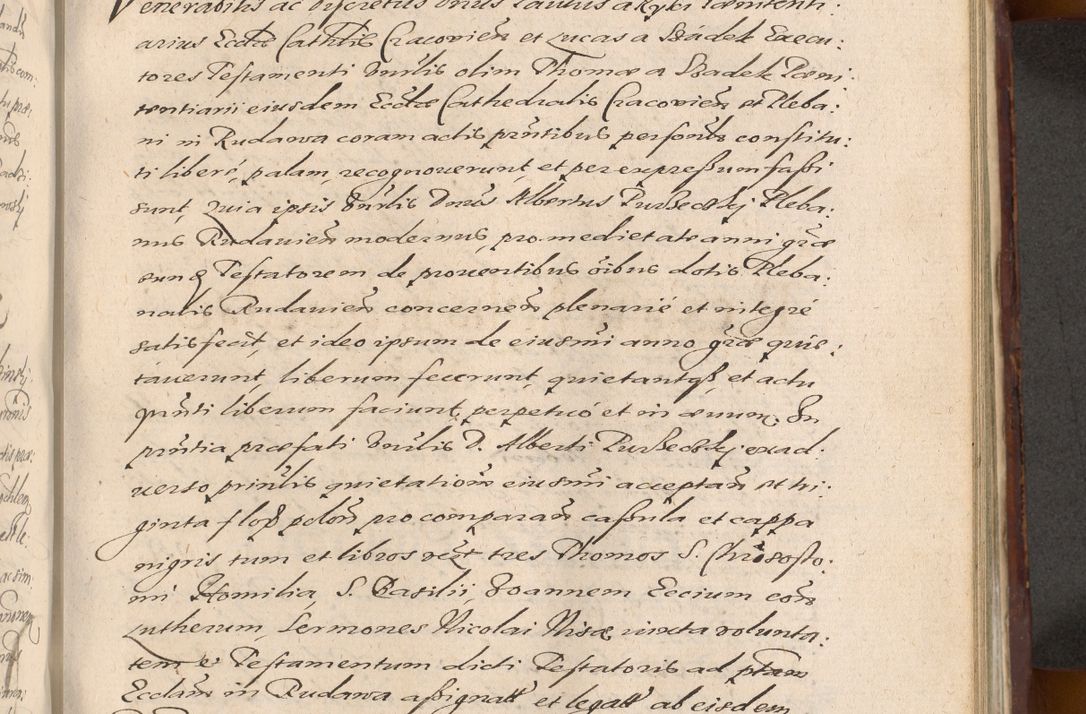 Venerabilis ac discretus Dnus Paulus a Kyki Poenitenti:
arius Ecclae Cathlis Cracovien et Lucas a Szadek Execu:
tores Testamenti Vnrlis olim Thomae a Szadek Poeni:
tentiarii eiusdem Ecclae Cathedralis Cracovien et Pleba:
ni in Rudawa coram actis pnntibus personlr constitu:
ti liberé, palam, recognoverunt, et per expressum fassi
sunt, Quia ipsis Vnrlis Dnus Albertus
mus Rudavien modernus, pro medietate anni grae
Testatorem de proventibus oibus dotis Pleba:
nalis Rudavien concernen plenarié et integré
satisfecit, et ideo ipsum de eiusmi anno grae quie:
taverunt, liberum fecerunt, quietantqs, et actu
pnnti liberum faciunt, perpetuó et in aevum. In
pnntia praefati Vnrlis D. Alberti ex ad:
verso prinlis quietationem eiusmi acceptan et tri:
ginta flor polon pro comparan cassula et cappa
nigris tum et libros tres Thomos S. Chrisosto:
mi Homilia, S. Basilii, Joannem Eccium con
Lutherum, Sermones Nicolai Nisae iuxta volunta:
tem et Testamentum dicti Testatoris ad ptam
Ecclam in Rudawa assignatt et legatt ab eisdem